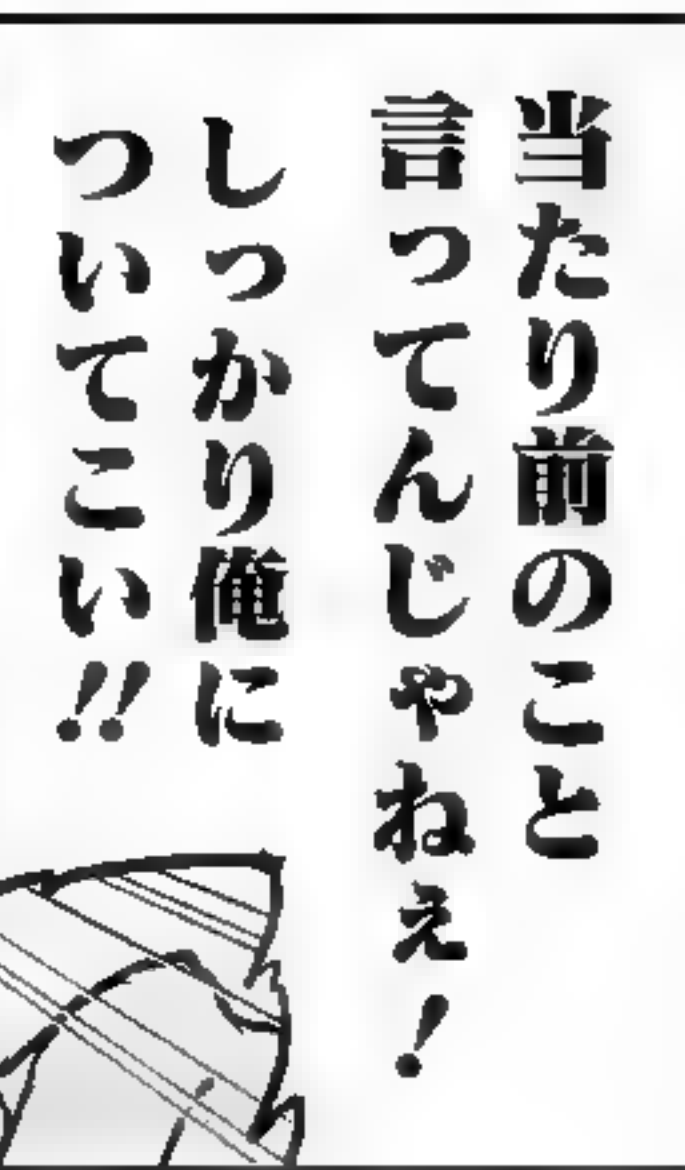 当たり前のこと
言ってんじゃねぇ!
しっかり俺に
ついてこい!!